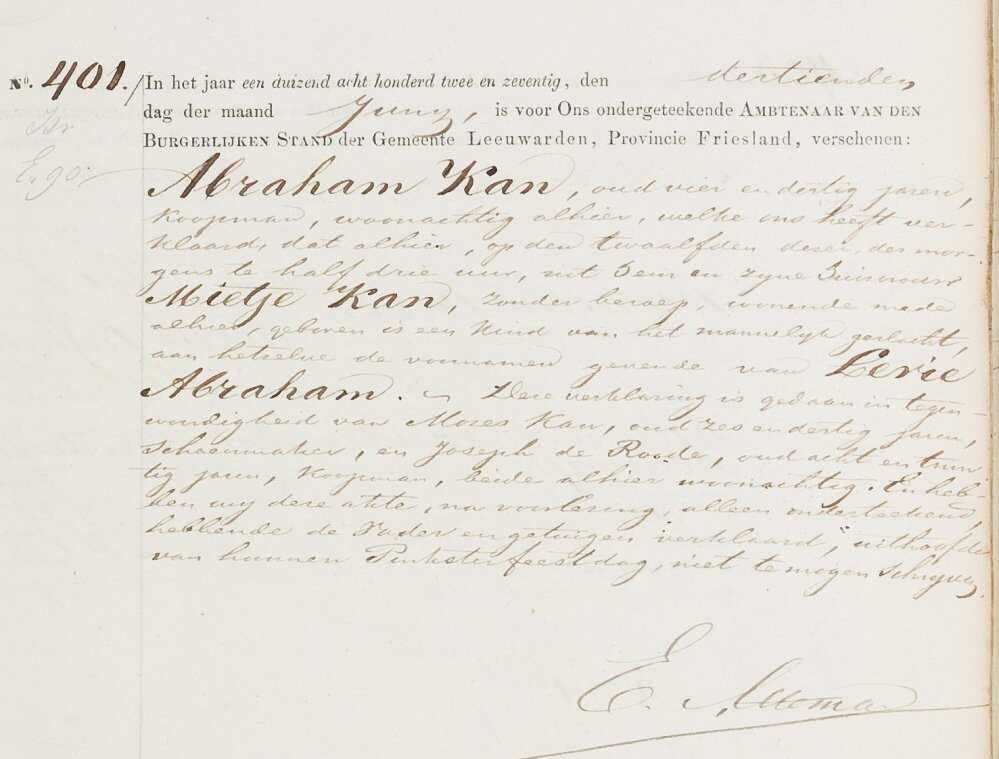 No. 401. / In het jaar een duizend acht honderd twee en zeventig, den dertienden
dag der maand Juny, is voor Ons ondergeteekende AMBTENAAR VAN DEN
BURGERLIJKEN STAND der Gemeente Leeuwarden, Provincie Friesland, verschenen:
Abraham Kan, oud vier en dertig jaren,
koopman, woonachtig alhier, welke ons heeft ver-
klaard, dat alhier, op den twaalfden dezer, des mor-
gens te half drie uur, uit hem en zyne huisvrouw
Mietje Kan, zonder beroep, wonende mede
alhier, geboren is een kind van het mannelyk geslacht,
aan hetzelve de voornamen gevende van Levie
Abraham. Deze verklaring is gedaan in tegen-
woordigheid van Mozes Kan, oud zes en dertig jaren,
schoenmaker, en Joseph de Roode, oud acht en twin
tig jaren, koopman, beide alhier woonachtig. En heb-
ben wy deze akte, na voorlezing, alleen onderteekend,
hebbende de Vader en getuigen verklaard, uithoofde
van hunnen Pinksterfeestdag, niet te mogen schryven.
E.